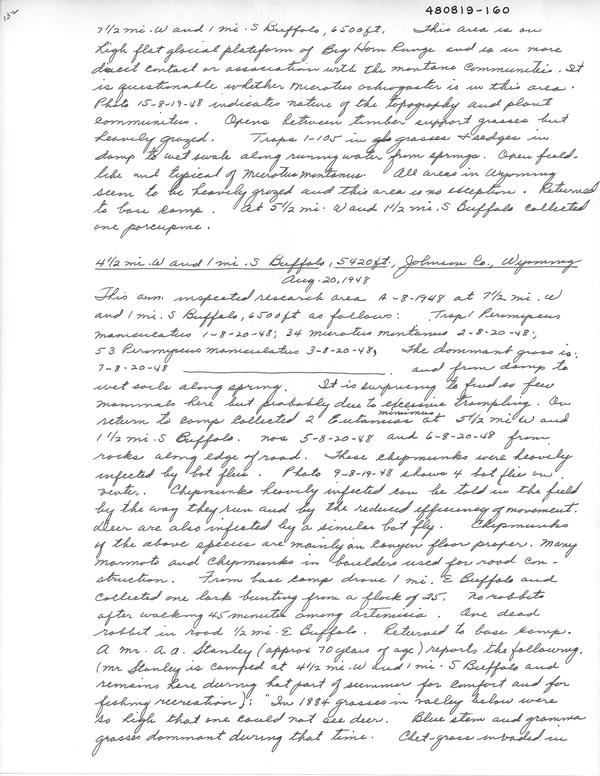 132
480819-160
7 1/2 mi. W and 1 mi. S Buffalo, 6500 ft. This area is on
high flat glacial plateform of Big Horn Range and is in more
direct contact or association with the montane communities. It
is questionable whether Microtus ochrogaster is in this area.
Photo 15-8-19-48 indicates nature of the topography and plant
communities. Opens between timber support grasses but
heavily grazed. Traps 1-105 in grasses & sedges in
damp to wet swale along running water from springs. Open field-
like and typical of Microtus montanus. All areas in Wyoming
seem to be heavily grazed and this area is no exception. Returned
to base camp. At 5 1/2 mi. W and 1 1/2 mi. S Buffalo collected
one porcupine.
4 1/2 mi. W and 1 mi. S Buffalo, 5420 ft., Johnson Co., Wyoming
Aug. 20, 1948
This a.m. inspected research area A-8-1948 at 7 1/2 mi. W
and 1 mi. S Buffalo, 6500 ft as follows: Trap 1 Peromyscus
maniculatus 1-8-20-48; 34 Microtus montanus 2-8-20-48;
53 Peromyscus maniculatus 3-8-20-48; The dominant grass is:
7-8-20-48 and from damp to
wet soils along spring. It is surprising to find so few
mammals here but probably due to excessive trampling. On
return to camp collected 2 Eutamias minimus at 5 1/2 mi W and
1 1/2 mi. S Buffalo. nos 5-8-20-48 and 6-8-20-48 from
rocks along edge of road. These chipmunks were heavily
infected by bot flies. Photo 9-8-19-48 shows 4 bot flies on
venter. Chipmunks heavily infected can be told in the field
by the way they run and by the reduced efficiency of movement.
Deer are also infested by a similar bot fly. Chipmunks
of the above species are mainly on canyon floor proper. Many
marmots and chipmunks in boulders used for road con-
struction. From base camp drove 1 mi. E Buffalo and
collected one lark bunting from a flock of 25. No rabbits
after walking 45 minutes among Artemisia. One dead
rabbit in road 1/2 mi. E Buffalo. Returned to base camp.
A Mr. A. A. Stanley (approx 70 years of age) reports the following.
(Mr Stanley is camped at 4 1/2 mi. W and 1 mi. S Buffalo and
remains here during hot part of summer for comfort and for
fishing recreation): "In 1884 grasses in valley below were
so high that one could not see deer. Blue stem and gramma
grasses dominant during that time. Chet-grass invaded in